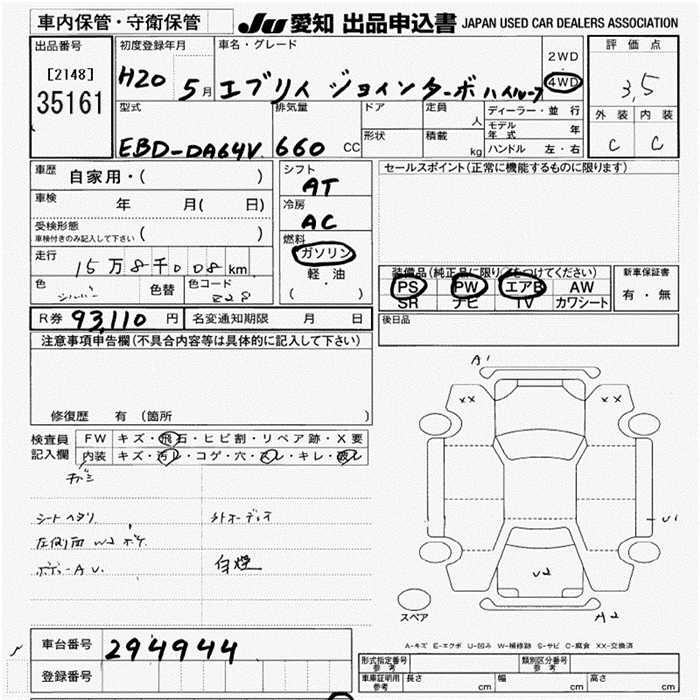 車内保管・守衛保管
JU 愛知 出品申込書 JAPAN USED CAR DEALERS ASSOCIATION
出品番号
[2148]
35161
初度登録年月
H20 5月
車名・グレード
エブリイ ジョインターボ ハイルーフ
2WD
4WD
評価点
3.5
外装 内装
C C
型式
EBD-DA64V
排気量
660 CC
ドア
形状
定員
人
積載
kg
ディーラー・並行
モデル年式 年
ハンドル 左・右
車歴
自家用・( )
車検
年 月( 日)
受検形態
車検付きのみ記入して下さい ( )
走行
15万8千008km
色
シルバー
色替
色コード
Z2S
シフト
AT
冷房
AC
燃料
ガソリン
軽・油
( )
セールスポイント(正常に機能するものに限ります)
PS PW エアB AW
SR ナビ TV カワシート
新車保証書
有・無
R券 93,110 円 名変通知期限 月 日
後日品
注意事項申告欄(不具合内容等は具体的に記入して下さい)
修復歴 有 (箇所 )
検査員記入欄
FW キズ・飛石・ヒビ割・リペア跡・X要
内装 キズ・汚レ・コゲ・穴・スレ・キレ・破レ
シートヘタリ 外オーディオ
白煙
ボデーAU.
A1
XX XX
U1
U2
A2
スペア
A-キズ E-エクボ U-凹み W-補修跡 S-サビ C-腐食 XX-交換済
車台番号 294944
登録番号
形式指定番号 参考
類別区分番号 参考
車庫証明用 参考 長さ cm 幅 cm 高さ cm